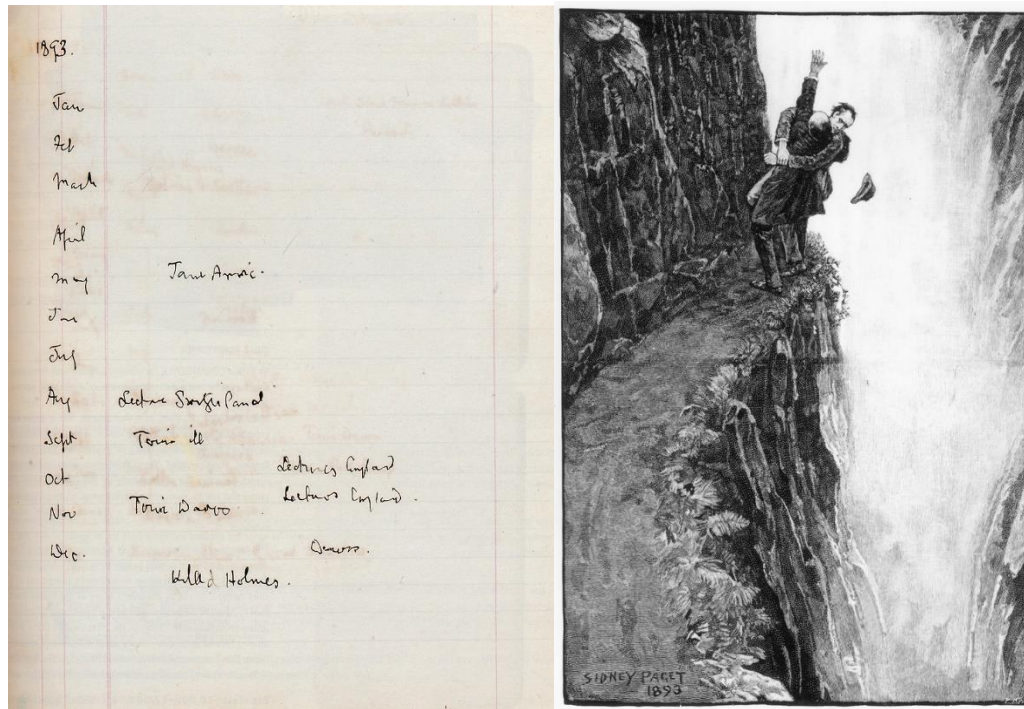 1893.
Jan
Feb
March
April
May Jane Annie.
June
July
Aug Lecture Switzerland
Sept Touie ill
Oct Lectures England
Nov Touie Davos Lectures England.
Dec. Davos.
Killed Holmes.
SIDNEY PAGET
1893